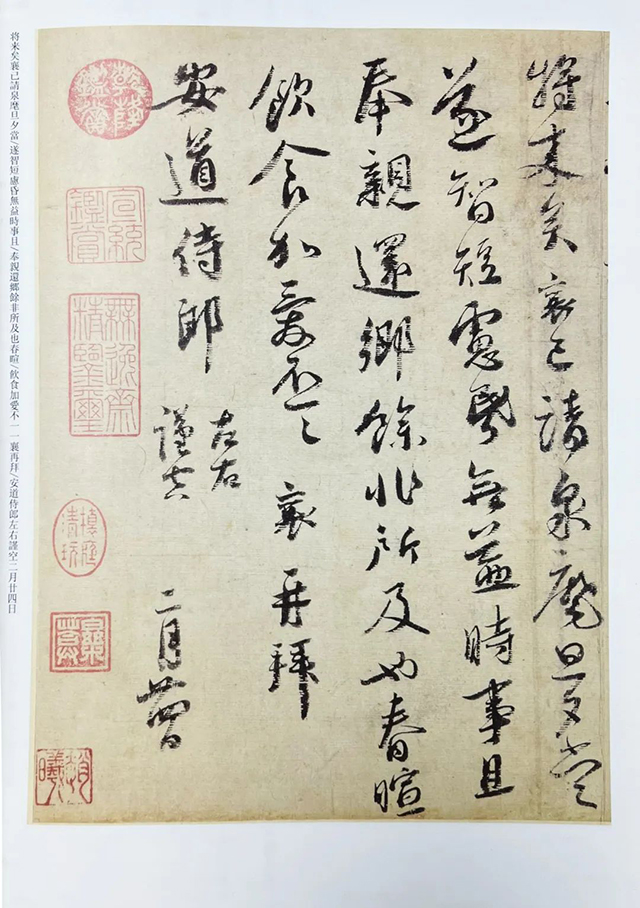 将来矣襄已請泉麾旦夕當
遂智短慮昏無益時事且
奉親還鄉餘非所及也春暄
飲食加愛不一一 襄再拜
安道侍郎 左右
謹空 二月廿四日
乾隆鑑賞
宣統鑑賞
無逸齋精鑒璽
蕉林
将来矣襄已請泉麾旦夕當/遂智短慮昏無益時事且/奉親還鄉餘非所及也春暄/飲食加愛不一一襄再拜/安道侍郎左右謹空二月廿四日